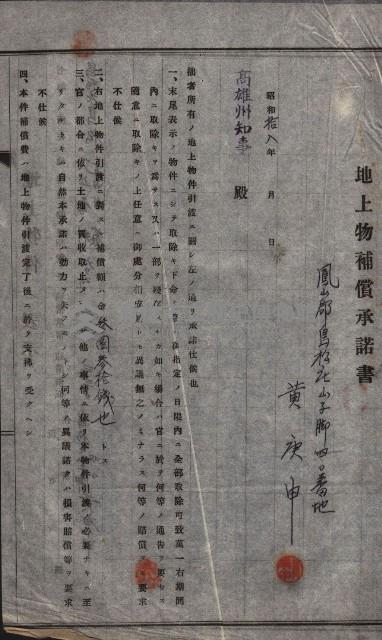 地上物補償承諾書
鳳山郡鳥松庄山子脚四〇番地
黃庚申
昭和拾八年 月 日
高雄州知事 殿
拙者所有ノ地上物件引渡ニ關シ左ノ通リ承諾仕候也
一、末尾表示ノ物件ニシテ取除キ下命ノ 御指定ノ日限內ニ全部取除可致萬一右期間
內ニ取除キヲ爲サス又ハ一部ヲ殘 カ如キ場合ハ官ニ於テ何等ノ通告ヲ要セス
隨意ニ取除キノ上任意ニ御處分相成 トモ異議無之ノミナラス何等ノ賠償 要求
不仕候
二、右地上物件引渡ニ要スル補償額ハ金 圓參拾 錢也 トス
三、官ノ都合ニ依リ土地ノ買收取止メ 他ノ事情ニ依リ本物件引渡ノ必要ナキニ至
リタルトキハ自然本承諾ハ効力ヲ失フモノトシ何等ノ異議諸タハ損害賠償等ヲ要求
不仕候
四、本件補償費ハ地上物件引渡完了後ニ於テ支拂ヲ受クヘシ